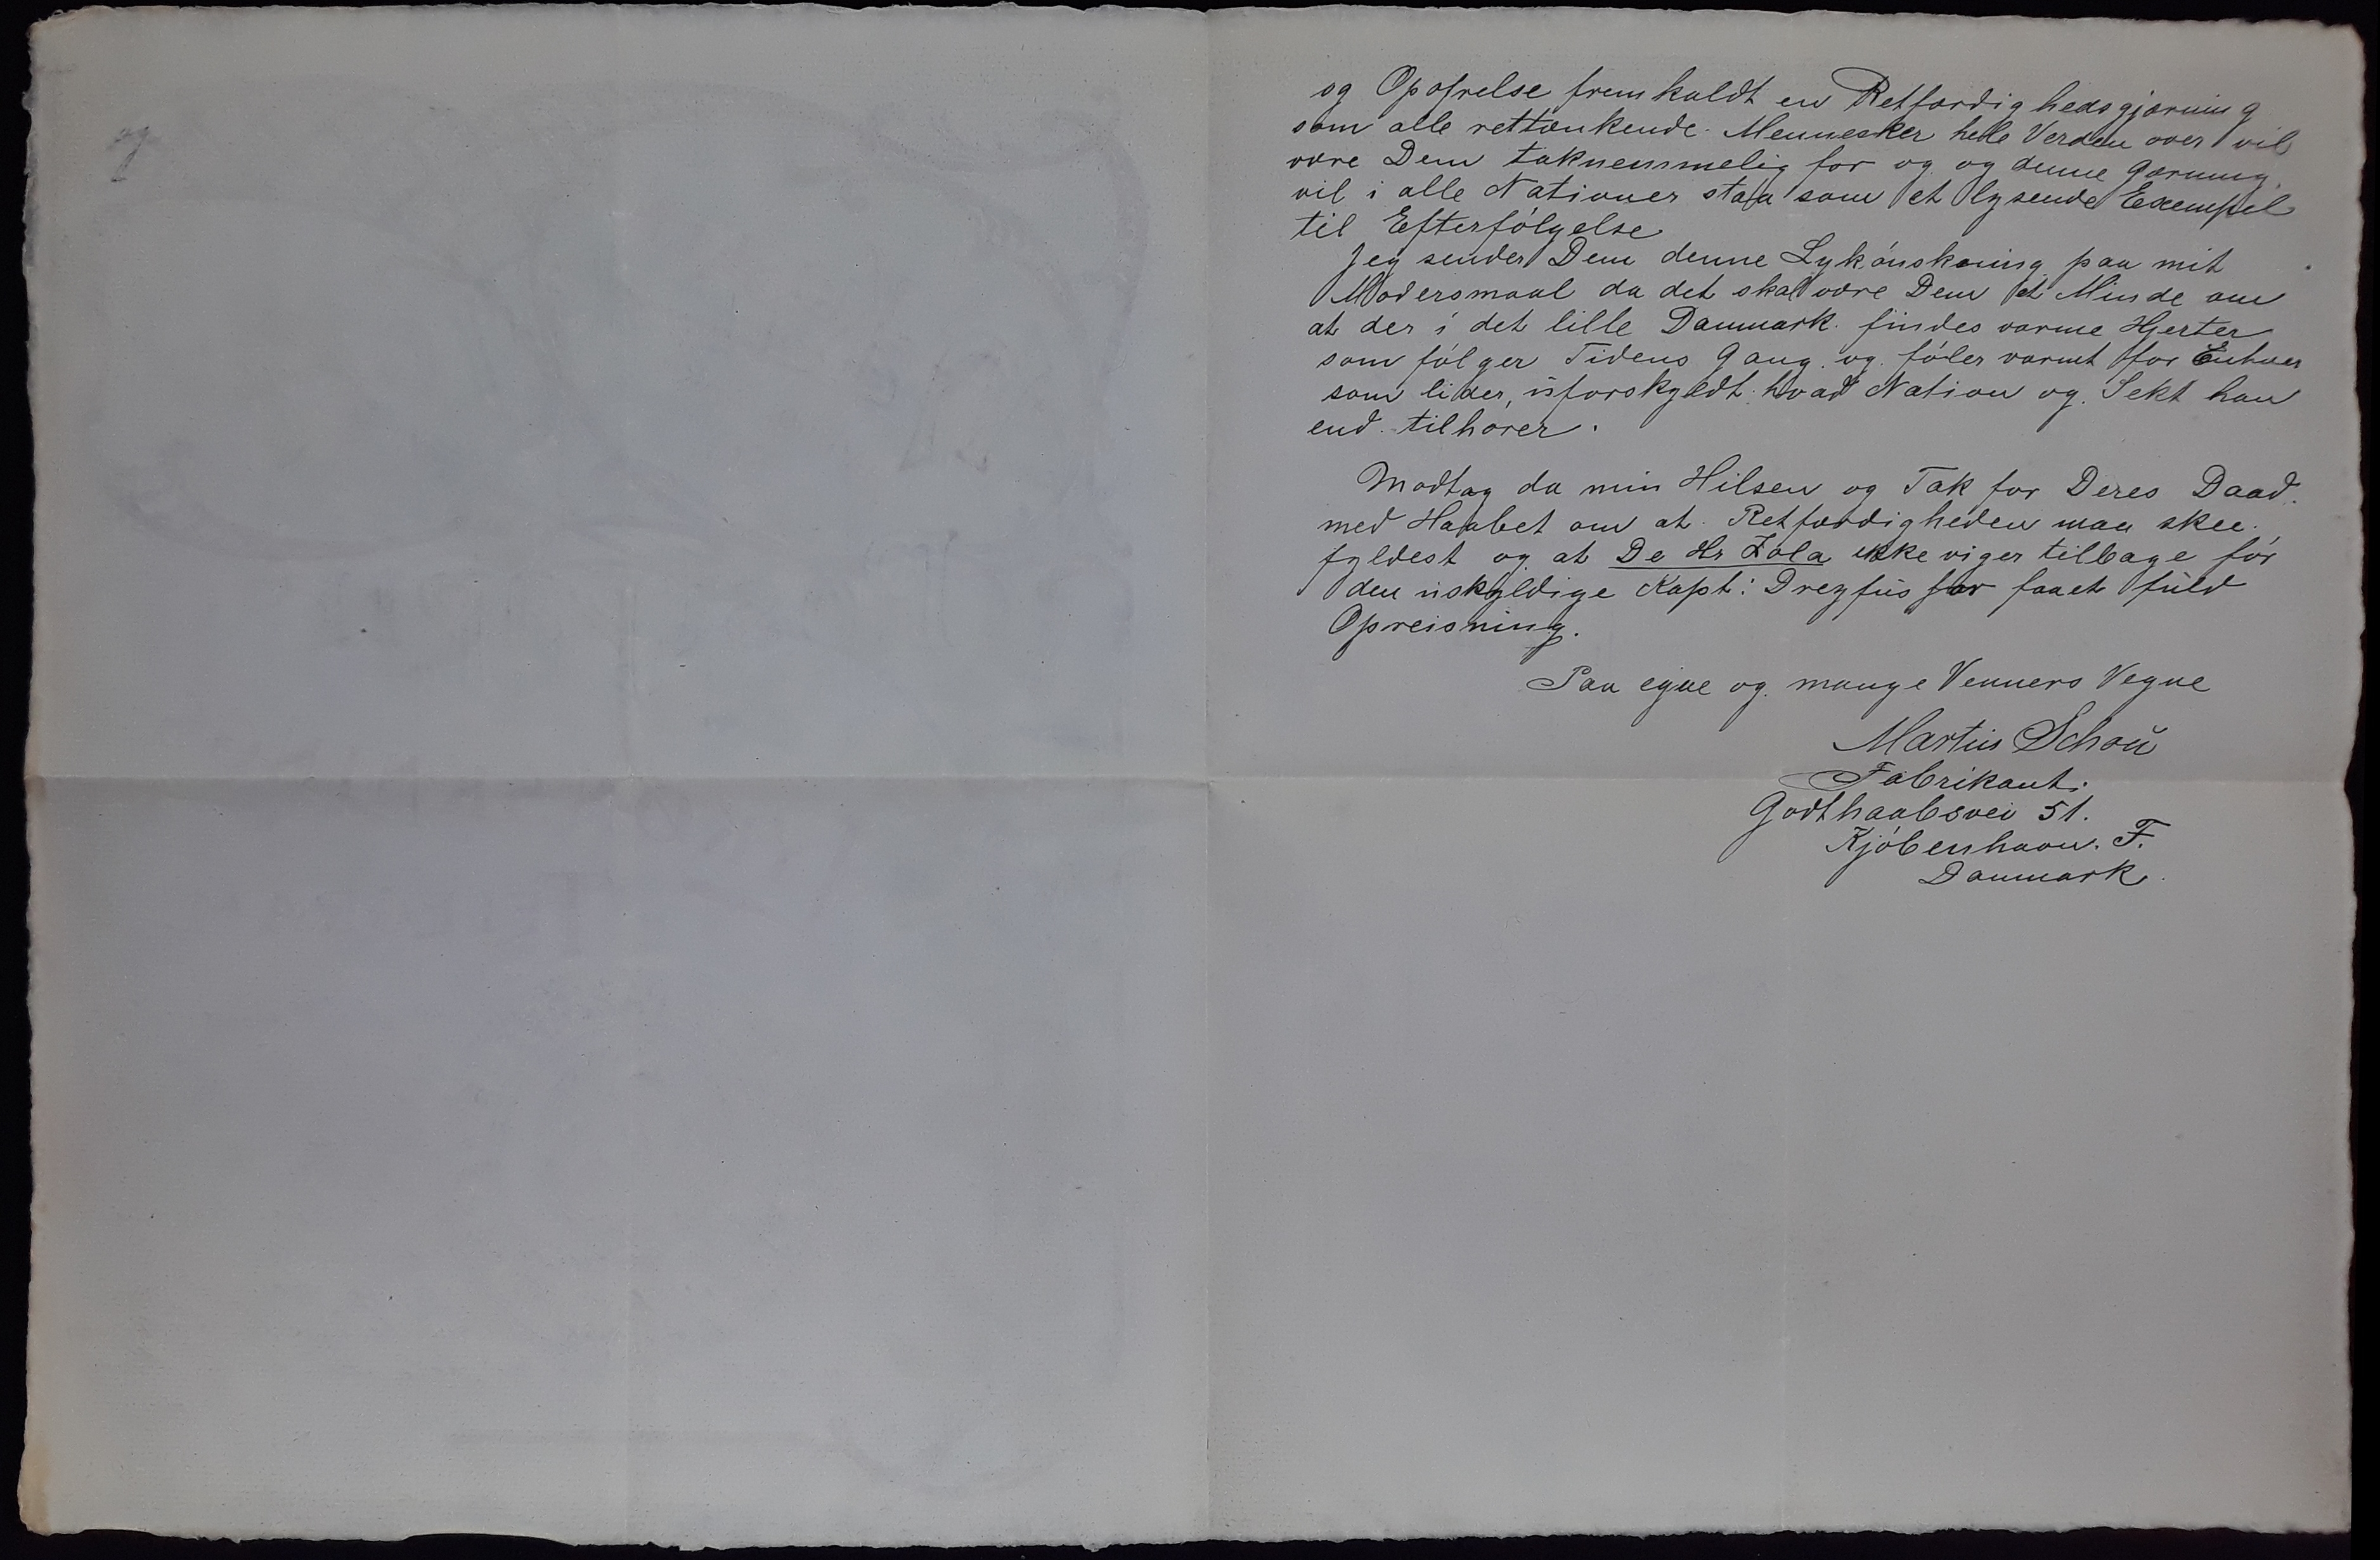 og Opofrelse fremkaldt en Retfærdighedsgjærning
som alle rettænkende Mennesker hele Verden over vil
være Dem taknemmelig for og og denne Gærning
vil i alle Nationer staa som et lysende Exempel
til Efterfólgelse
Jeg sender Dem denne Lykónskning paa mit
Modersmaal da det skal være Dem et Minde om
at der i det lille Danmark findes varme Hjerter
som fólger Tidens Gang og fóler varmt for Enhver
som lider, uforskyldt hvad Nation og Sekt han
end tilhorer.
Modtag da min Hilsen og Tak for Deres Daad.
med Haabet om at Retfærdigheden maa skee
fyldest og at De Hr Zola ikke viger tilbage fór
den uskyldige Kapt: Dreyfus har faaet fuld
Opreisning.
Paa egne og mange Venners Vegne
Martin Schou
Fabrikant.
Godthaabsvei 51.
Kjóbenhavn. F.
Danmark.